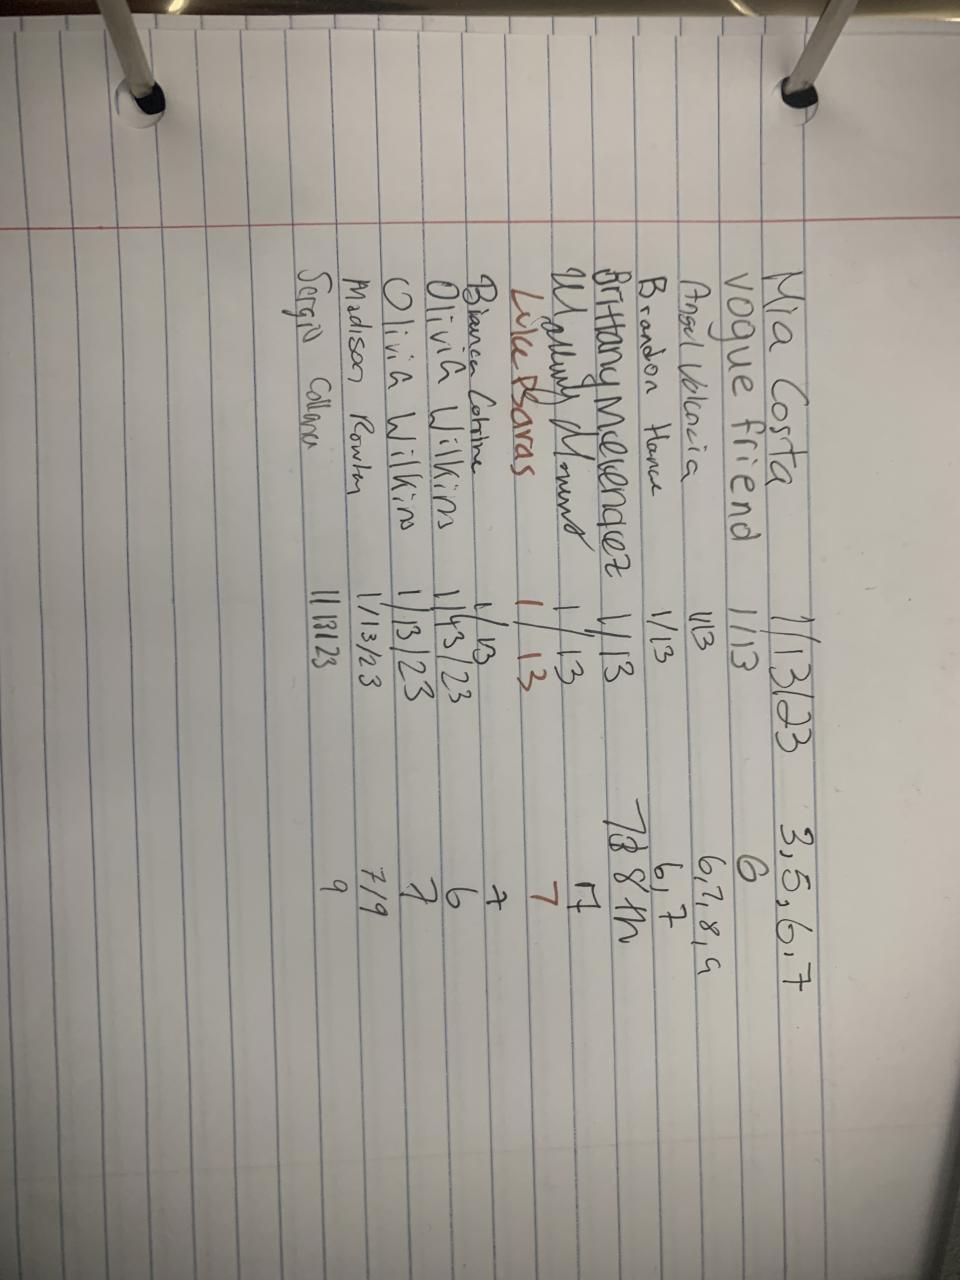 Mia Costa 1/13/23 3,5,6,7
vogue friend 1/13 6
Angel Valencia 1/13 6,7,8,9
Brandon Hance 1/13 6,7
Brittany Melendez 1/13 7 & 8th
1/13 7
Luke Psaras 1/13 7
Bianca 1/13 7
Olivia Wilkins 1/13/23 6
Olivia Wilkins 1/13/23 7
Madison Rowley 1/13/23 7/9
Sergio 1/13/23 9